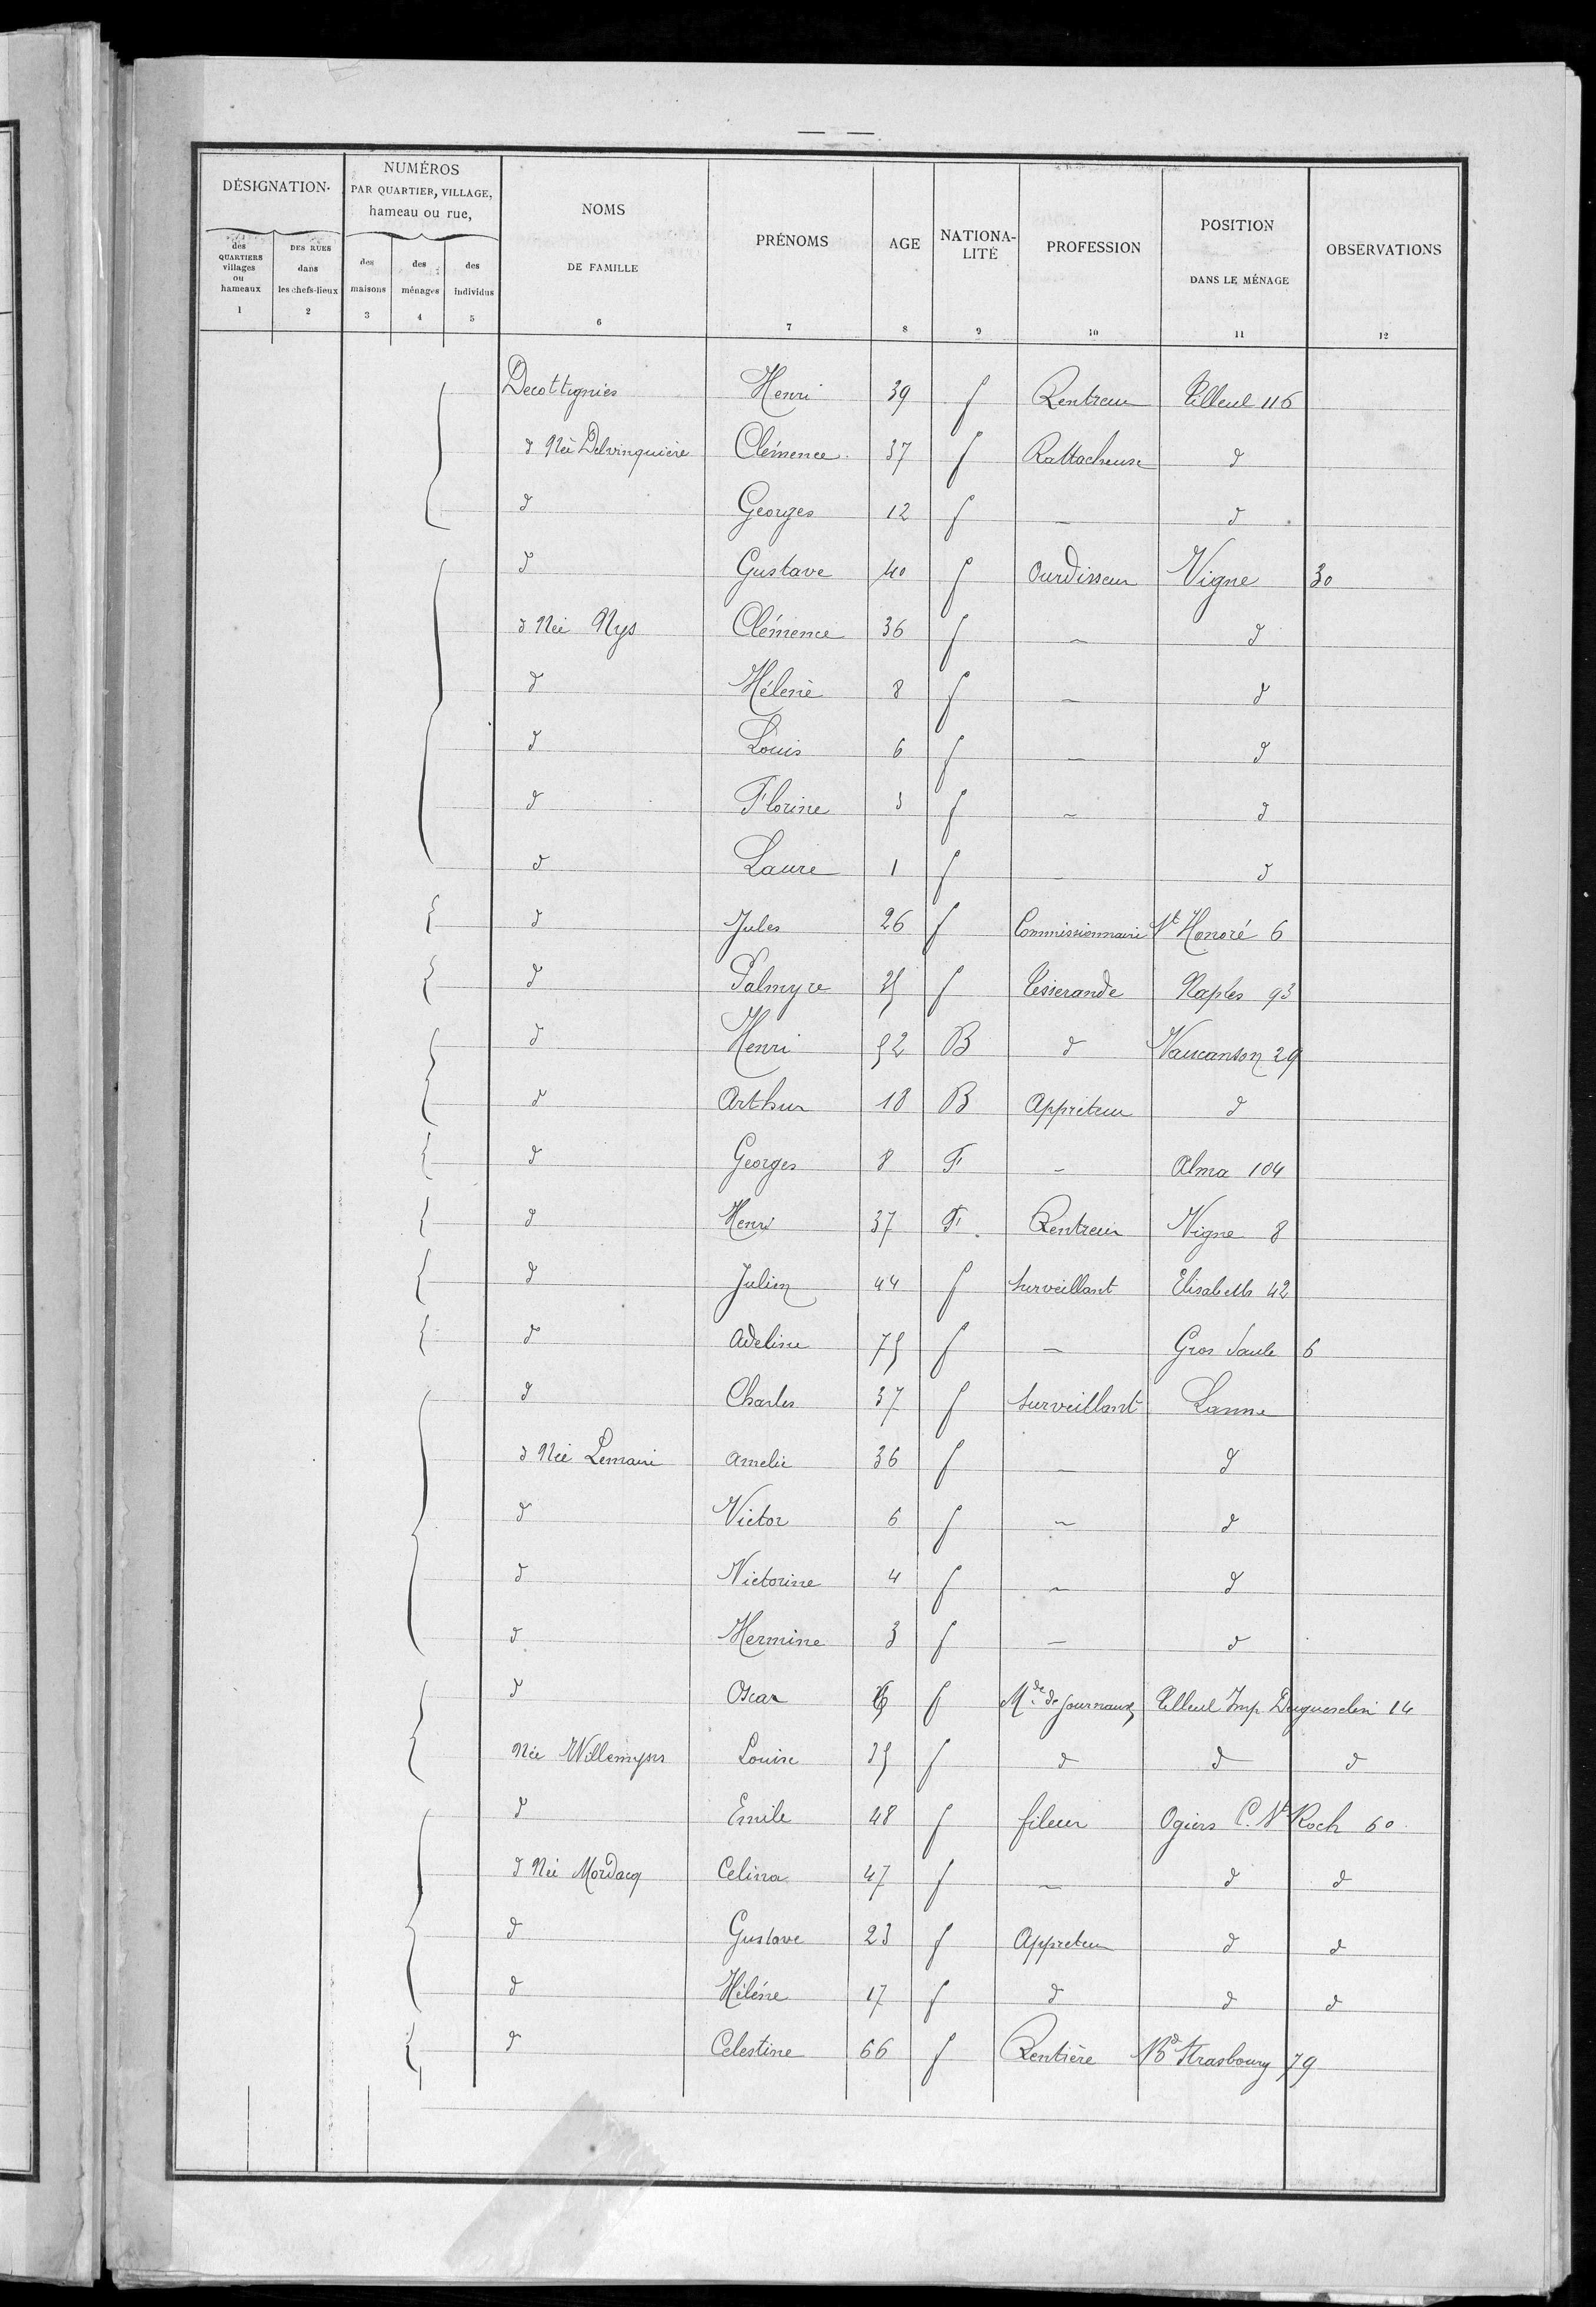 DÉSIGNATION
NUMÉROS PAR QUARTIER, VILLAGE, hameau ou rue,
NOMS DE FAMILLE
PRÉNOMS
AGE
NATIONA-LITÉ
PROFESSION
POSITION DANS LE MÉNAGE
OBSERVATIONS
des QUARTIERS villages ou hameaux
DES RUES dans les chefs-lieux
des maisons
des ménages
des individus
1 2 3 4 5 6 7 8 9 10 11 12
Decottignies Henri 39 f Rentreur Tilleul 116
d Née Delvinquière Clémence 37 f Rattacheuse d
d Georges 12 f — d
d Gustave 40 f Ourdisseur Vigne 30
d Née Nys Clémence 36 f — d
d Hélène 8 f — d
d Louis 6 f — d
d Florine 3 f — d
d Laure 1 f — d
d Jules 26 f Commissionnaire St Honoré 6
d Palmyre f Tisserande Naples 93
d Henri 52 B d Vaucanson 29
d Arthur 18 B Appreteur d
d Georges 8 F — Alma 104
d Henri 37 F. Rentreur Vigne 8
d Julien 44 f Surveillant Elisabeth 42
d Adeline 75 f — Gros Saule 6
d Charles 37 f Surveillant Lanne
d Née Lemaire Amelie 36 f — d
d Victor 6 f — d
d Victorine 4 f — d
d Hermine 3 f — d
d Oscar f Md de Journaux Tilleul Imp Duguesclin 14
Née Willemyns Louise 35 f d d d
d Emile 48 f fileur Ogiers C. St Roch 60
d Née Mordacq Celina 47 f — d d
d Gustave 23 f Appreteur d d
d Hélène 17 f d d d
d Celestine 66 f Rentière Bd Strasbourg 79